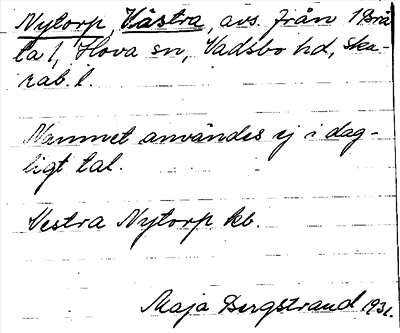 Nytorp, Västra, avs. från 1 Brå
ta 1, Hova sn, Vadsbo hd, Ska-
rab. l.
Namnet användes ej i dag-
ligt tal.
Vestra Nytorp kb.
Maja Bergstrand 1931.